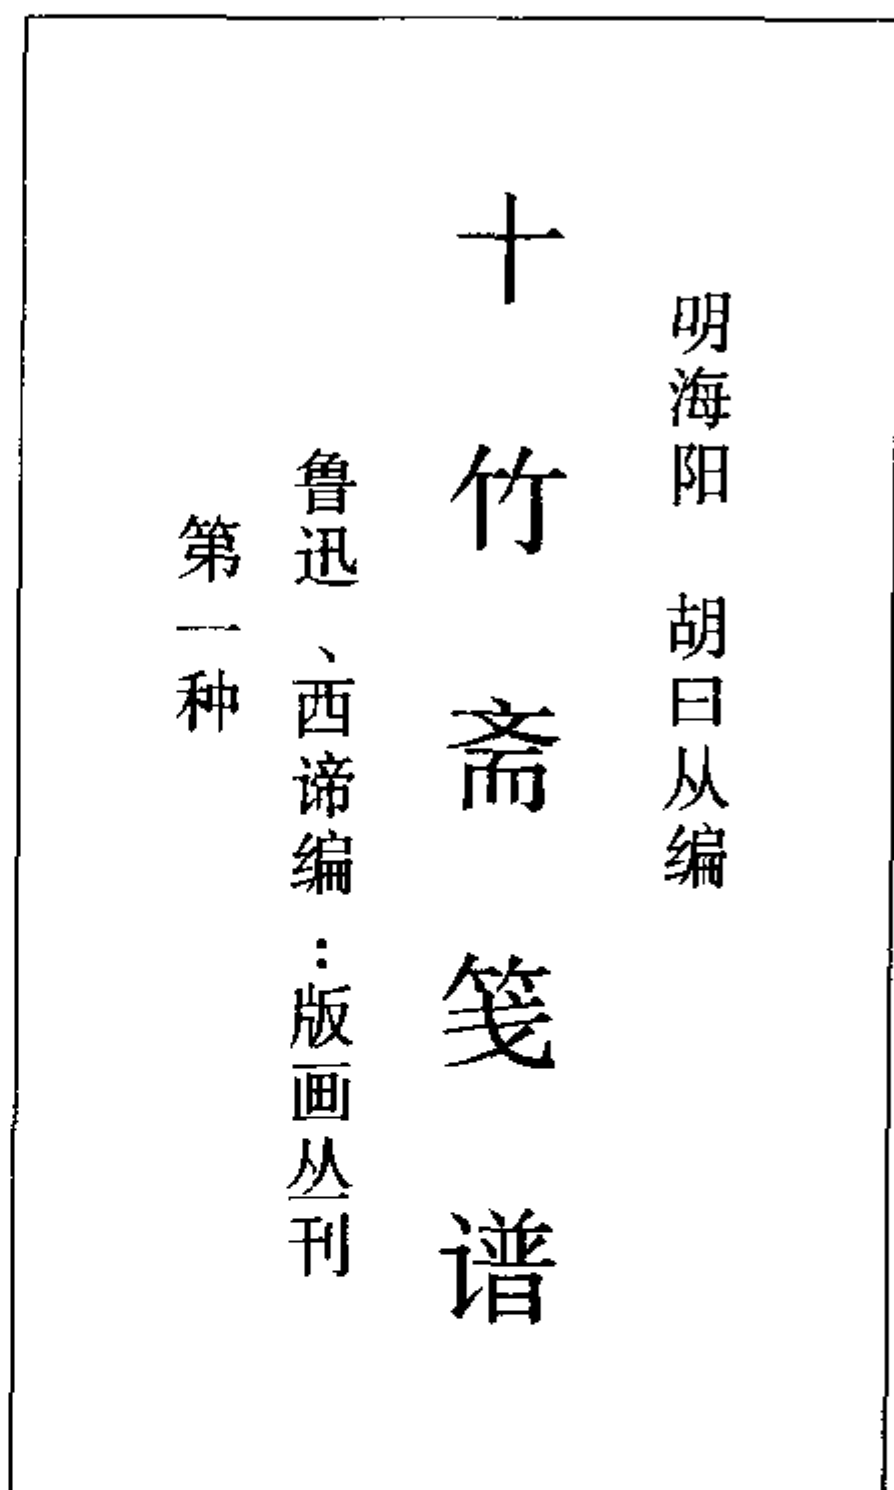 明海阳 胡曰从编
十竹斋笺谱
鲁迅、西谛编:版画丛刊
第一种